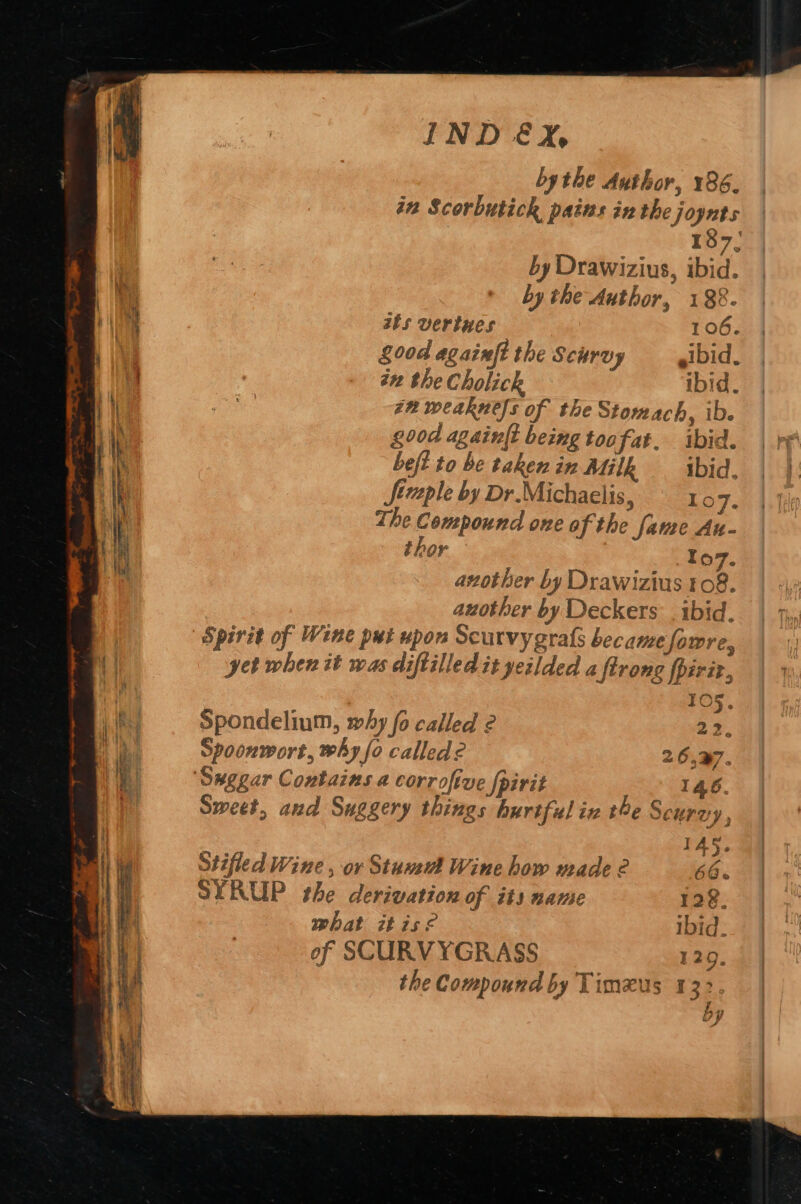 INDEX,
by the Author, 186.
in Scorbutick pains in the joynts
187.
by Drawizius, ibid.
by the Author, 188.
its vertues 106.
good againſt the Scurvy ibid.
in the Cholick ibid.
in weakneſs of the Stomach, ib.
good againſt being too fat. ibid.
beſt to be taken in Milk ibid.
ſimple by Dr. Michaelis, 107.
The Compound one of the ſame Au-
thor 107.
another by Drawizius 108.
another by Deckers ibid.
Spirit of Wine put upon Scurvygraſs became ſowre,
yet when it was diſtilled it yeilded a ſtrong ſpirit,
105.
Spondelium, why ſo called ? 22.
Spoonwort, why ſo called ? 26,27.
Suggar Contains a corroſive ſpirit 146.
Sweet, and Suggery things hurtful in the Scurvy,
145.
Stifled Wine, or Stumm Wine how made ? 66.
SYRUP the derivation of its name 128.
what it is ? ibid.
of SCURVYGRASS 129.
the Compound by Timæus 132.
by